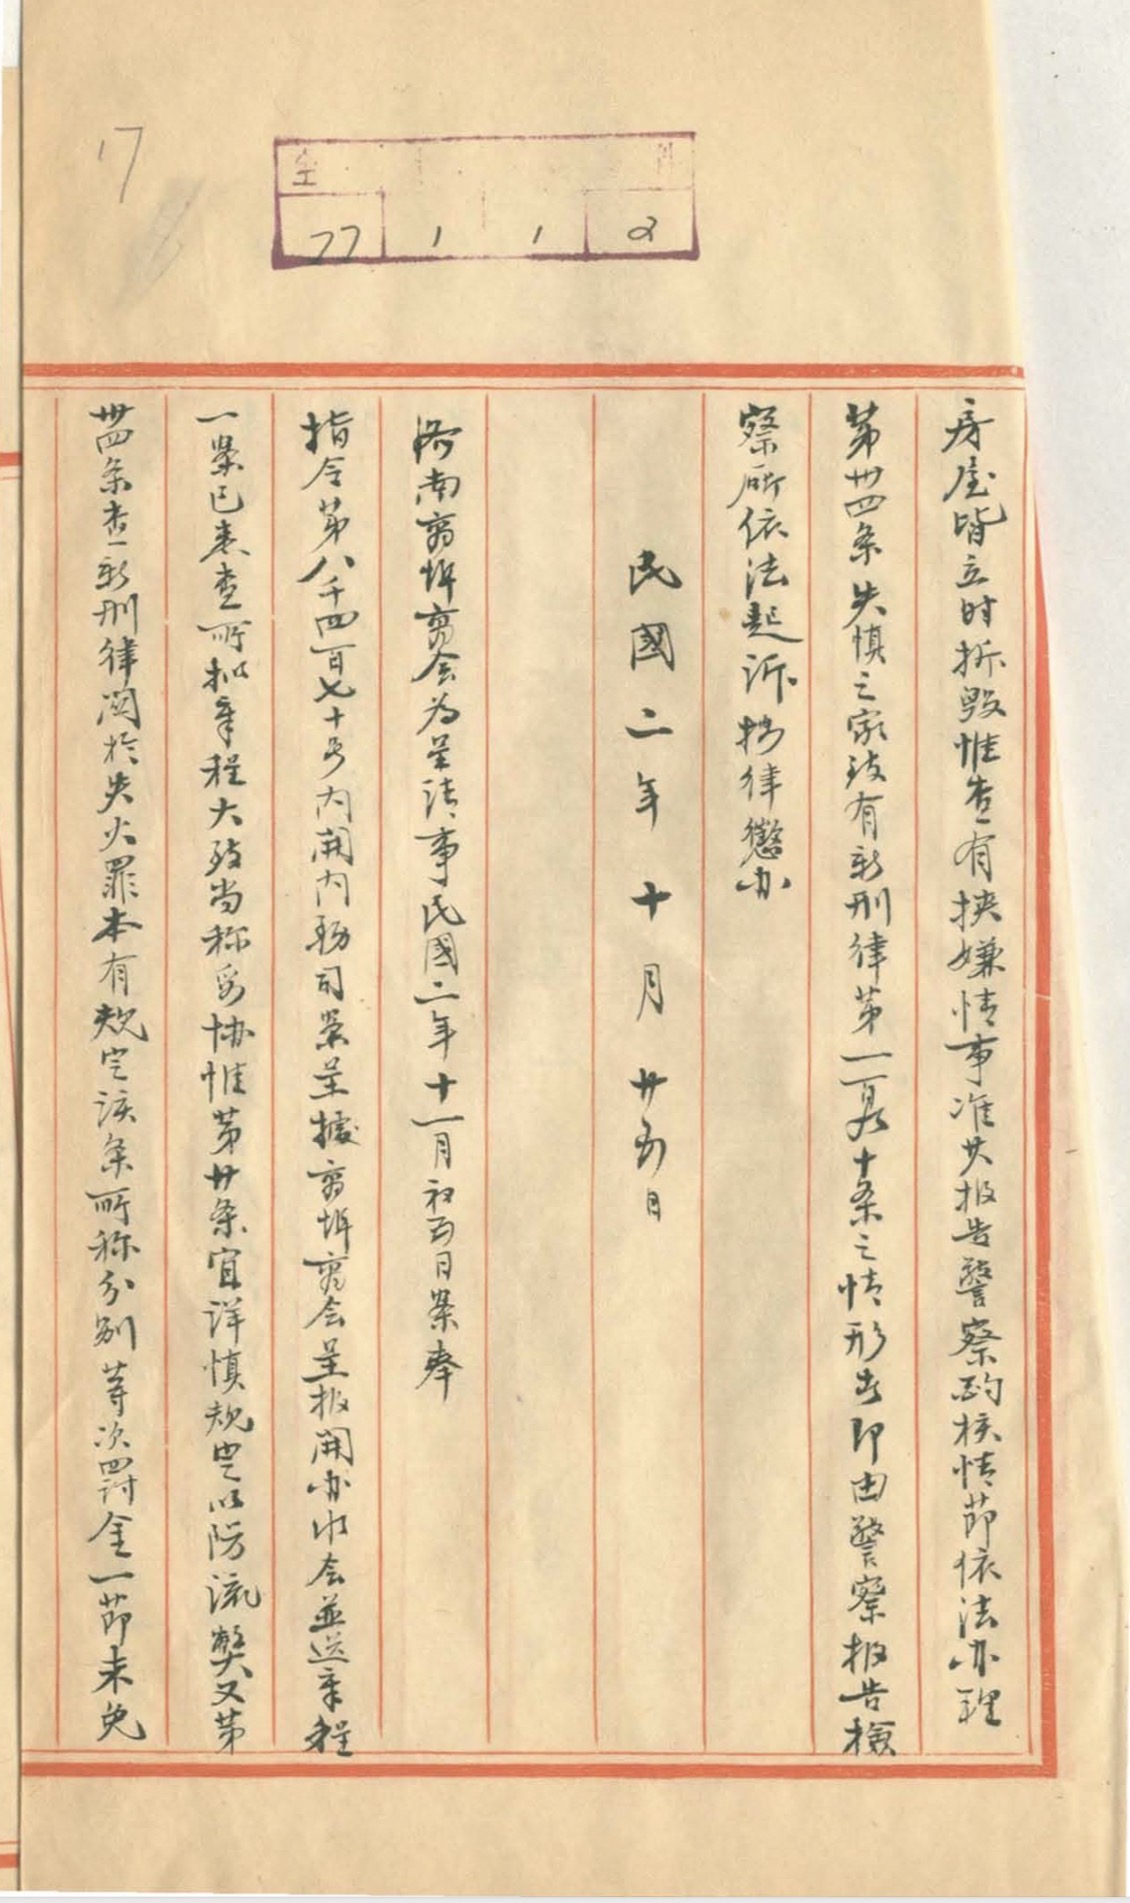 17
全
77 1 1 2
房屋皆立时拆毁惟查有挟嫌情事准其报告警察酌核情節依法办理
第卅四条失慎之家致有新刑律第一百九十条之情形者即由警察报告檢
察所依法起诉按律懲办
民國二年十月廿五日
济南商埠商会为呈請事民國二年十一月初五日案奉
指令第八千四百七十号内開内務司案呈據商埠商会呈报開办水会並送章程
一案已悉查所拟章程大致尚称妥协惟第廿条宜详慎规定以防流弊又第
卅四条查新刑律関於失火罪本有规定该条所称分别等次罰金一節未免